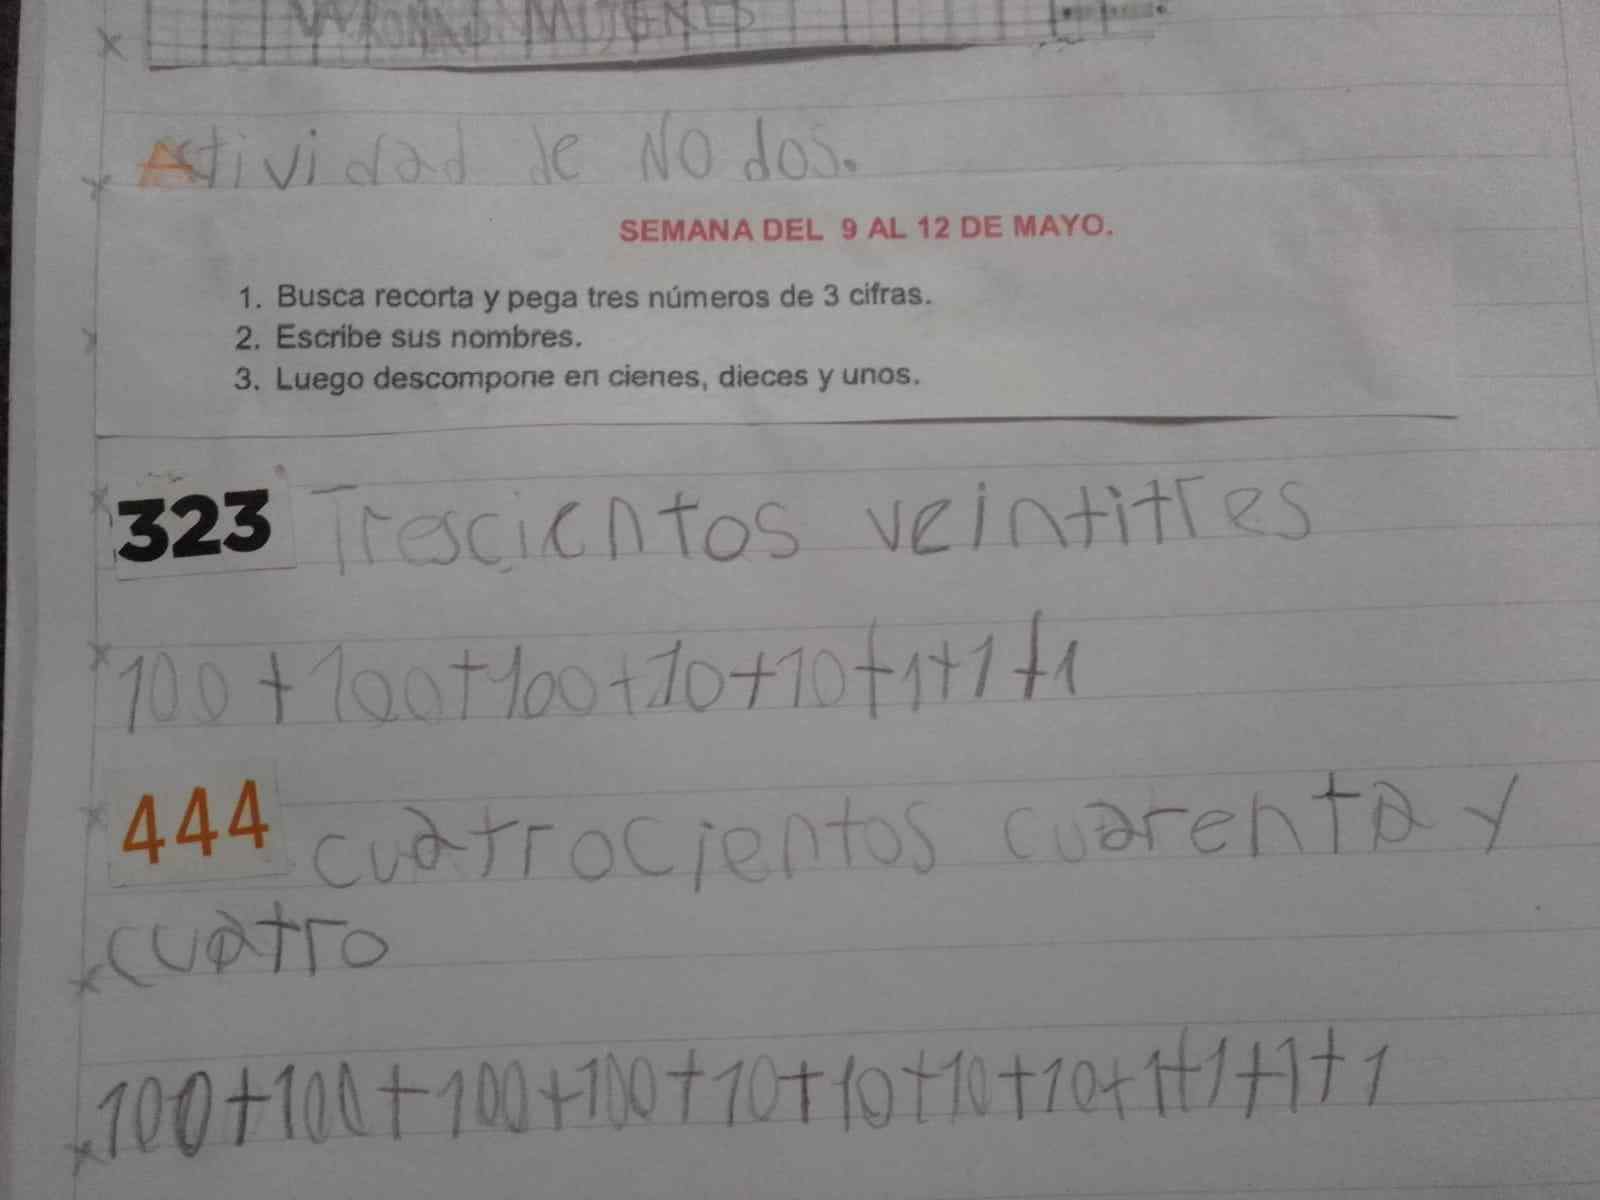 Actividad de Nodos.
SEMANA DEL 9 AL 12 DE MAYO.
1. Busca recorta y pega tres números de 3 cifras.
2. Escribe sus nombres.
3. Luego descompone en cienes, dieces y unos.
323 Trescientos veintitres
100+100+100+10+10+1+1+1
444 cuatrocientos cuarenta y
cuatro
100+100+100+100+10+10+10+10+1+1+1+1